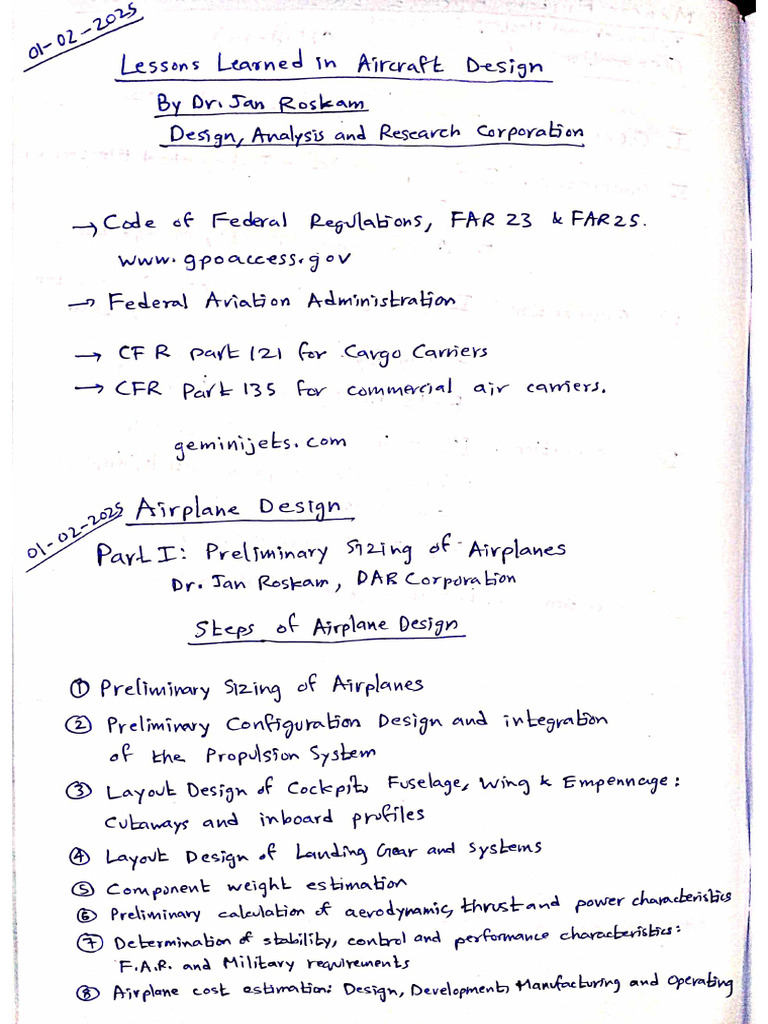 01-02-2025
Lessons Learned in Aircraft Design
By Dr. Jan Roskam
Design, Analysis and Research Corporation
→ Code of Federal Regulations, FAR 23 & FAR25.
www.gpoaccess.gov
→ Federal Aviation Administration
→ CFR part 121 for Cargo Carriers
→ CFR Part 135 for commercial air carriers.
geminijets.com
01-02-2025 Airplane Design
Part I: Preliminary Sizing of Airplanes
Dr. Jan Roskam, DAR Corporation
Steps of Airplane Design
① Preliminary Sizing of Airplanes
② Preliminary Configuration Design and integration
of the Propulsion System
③ Layout Design of Cockpit, Fuselage, Wing & Empennage:
Cutaways and inboard profiles
④ Layout Design of Landing Gear and Systems
⑤ Component weight estimation
⑥ Preliminary calculation of aerodynamic, thrust and power characteristics
⑦ Determination of stability, control and performance characteristics:
F.A.R. and Military requirements
⑧ Airplane cost estimation: Design, Development, Manufacturing and Operating